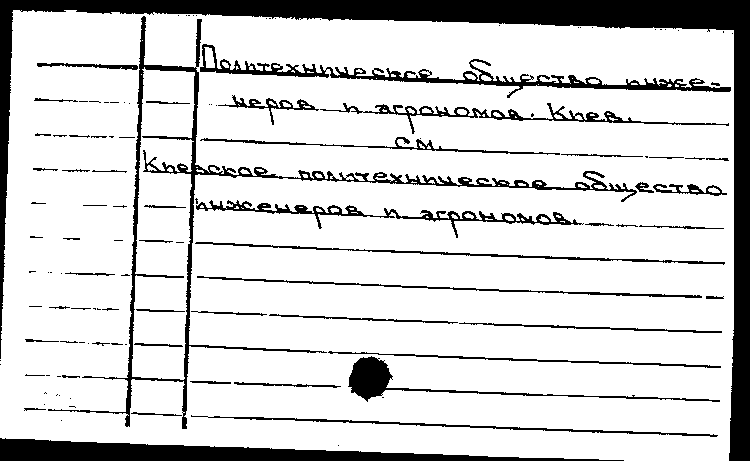 Политехническое общество инже-
неров и агрономов. Киев.
см.
Киевское политехническое общество
инженеров и агрономов.